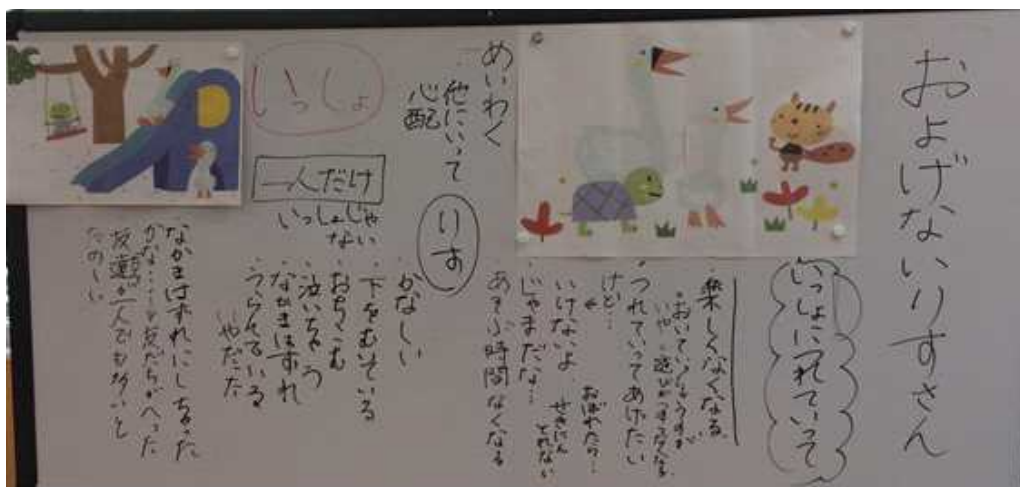 およげないりすさん
いっしょにつれていって
楽しくなくなる。
つれていってあげたい
けど…
おぼれたら…
いけないよ
せきにん
とれない
じゃまだな…
あそぶ時間なくなる
めいわく
他にいって
心配
りす
かなしい
下をむいている
おちこむ
泣いちゃう
なかまはずれ
うらんでいる
いやだな
いっしょ
一人だけ
いっしょじゃ
ない
なかまはずれにしちゃった
かな……友だちがへった
友達が一人でも多いと
たのしい